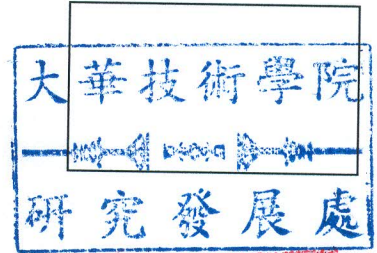 大華技術學院
研究發展處